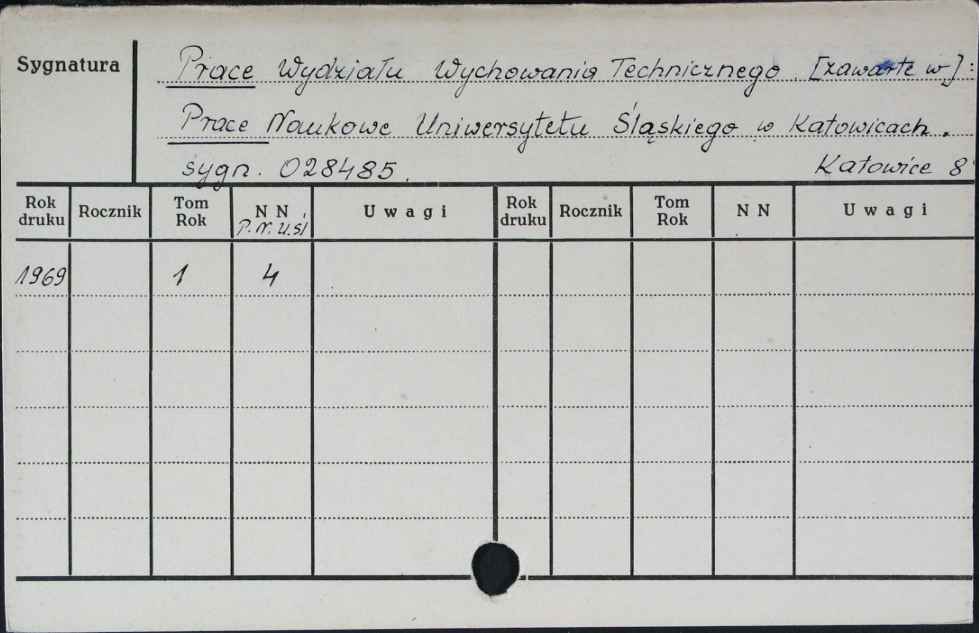 Sygnatura
Prace Wydziału Wychowania Technicznego. [zawarte w]:
Prace Naukowe Uniwersytetu Śląskiego w Katowicach.
sygn. 028485. Katowice 8°
Rok druku Rocznik Tom Rok NN Uwagi Rok druku Rocznik Tom Rok NN Uwagi
P.N.U.Śl
1969 1 4